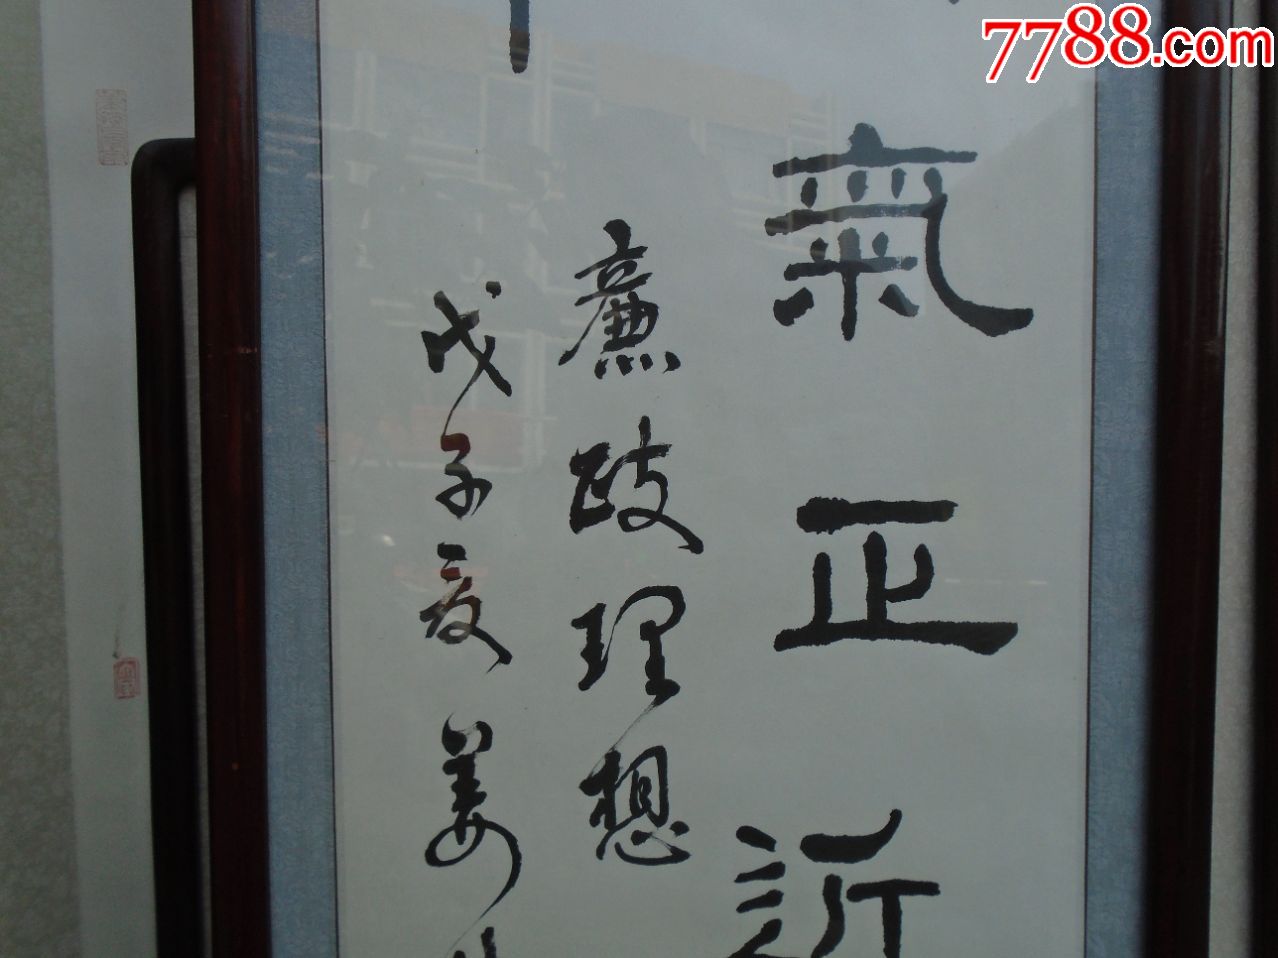 7788.com
氣正近
廉政理想
戊子夏姜